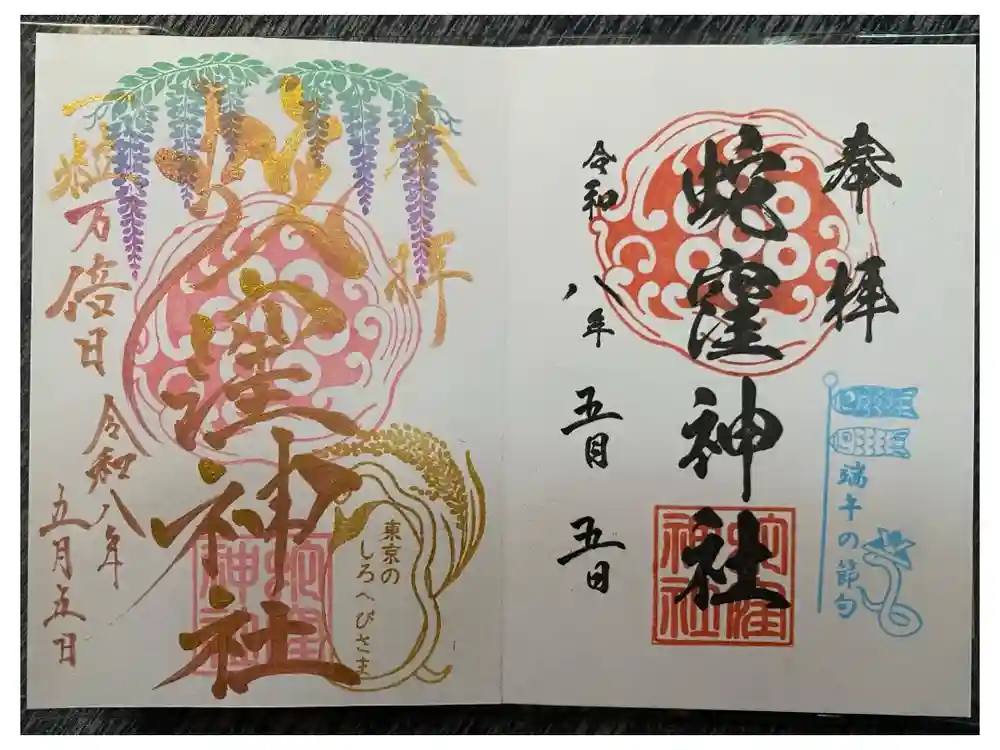 奉拝
端午の節句
蛇窪神社
蛇窪神社
令和八年五月五日
奉拝
東京の
しろへびさま
蛇窪神社
蛇窪神社
一粒
万倍日
令和八年
五月五日